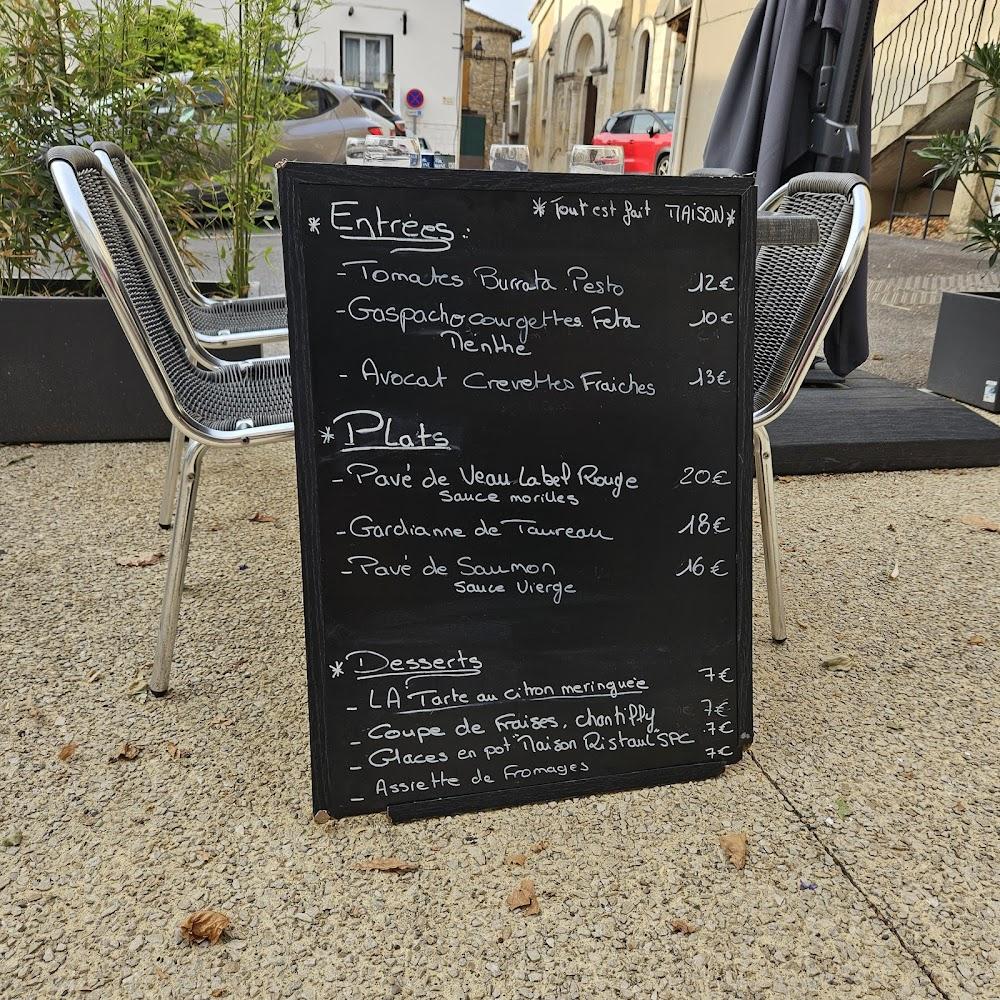 * Entrées :
* Tout est fait MAISON *
- Tomates Burrata Pesto 12€
- Gaspacho courgettes Feta 10€
Menthe
- Avocat Crevettes Fraiches 13€
* Plats
- Pavé de Veau Label Rouge 20€
Sauce morilles
- Gardianne de Taureau 18€
- Pavé de Saumon 16€
Sauce Vierge
* Desserts
- LA Tarte au citron meringuée 7€
- Coupe de Fraises, chantilly 7€
- Glaces en pot "Maison Ristaul" SPC 7€
- Assiette de Fromages 7€